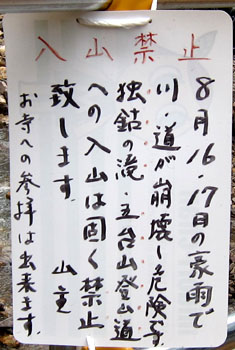 入山禁止
8月16・17日の豪雨で
川・道が崩壊し危険な為
独鈷の滝・五台山登山道
への入山は固く禁止
致します。 山主
お寺への参拝は出来ます。